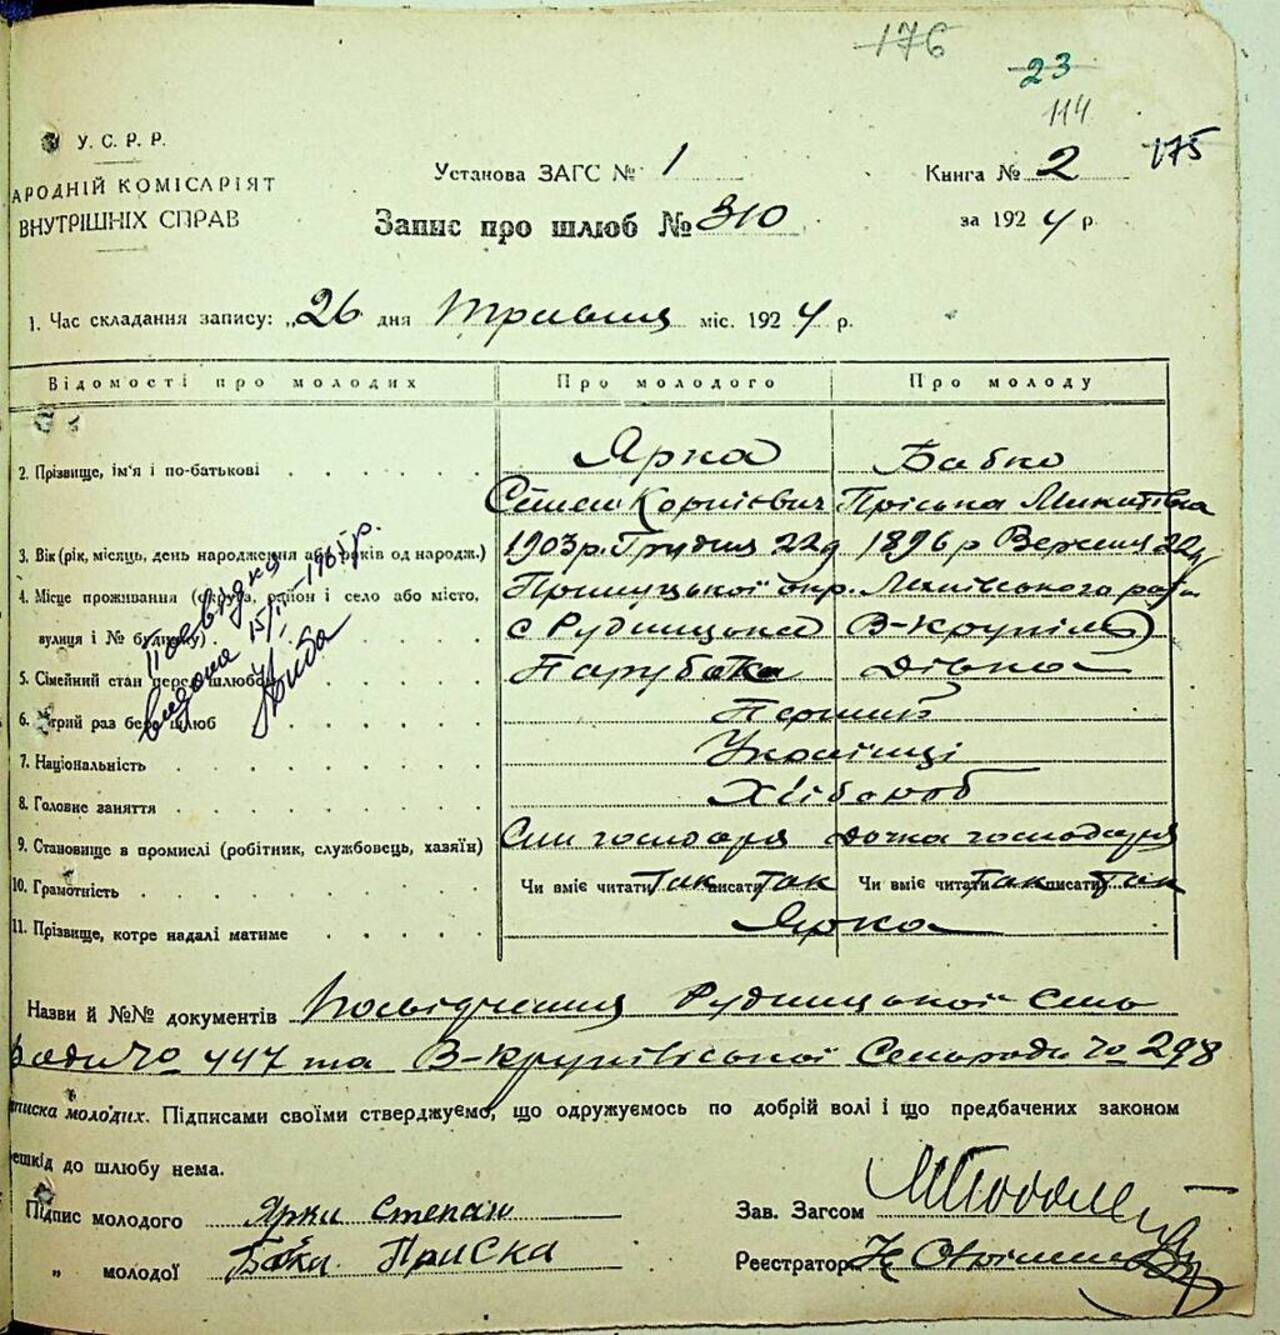 176
23
114
175
У. С. Р. Р.
АРОДНІЙ КОМІСАРІЯТ
ВНУТРІШНІХ СПРАВ
Установа ЗАГС № 1
Книга № 2
Запис про шлюб № 310
за 1924 р.
1. Час складання запису: „26 дня Травня міс. 1924 р.
Відомості про молодих Про молодого Про молоду
2. Прізвище, ім'я і по-батькові Ярка Бабко
Корнієвич Пріська Микитівна
3. Вік (рік, місяць, день народження або років од народж.) 1903 р. Грудня 22 д 1896 р Вересня 22 д
4. Місце проживання (округа, район і село або місто, Прилуцької окр. району
вулиця і № будинку) с Рудницька В-Крупіль
5. Сімейний стан перед шлюбом Парубок Дівка
6. Котрий раз бере шлюб Перший
7. Національність Українці
8. Головне заняття Хлібороб
9. Становище в промислі (робітник, службовець, хазяїн) Син господаря дочка господаря
10. Грамотність Чи вміє читати Так писати Так Чи вміє читати Так писати Так
11. Прізвище, котре надалі матиме Ярка
видана 15/ІІ-1965 р.
Назви й №№ документів Посвідчення Рудницької Сель
ради № 447 та В-Крупівської Сельради № 298
писка молодих. Підписами своїми стверджуємо, що одружуємось по добрій волі і що предбачених законом
ешкід до шлюбу нема.
Підпис молодого Ярки Степан
„ молодої Приска
Зав. Загсом
Реєстратор